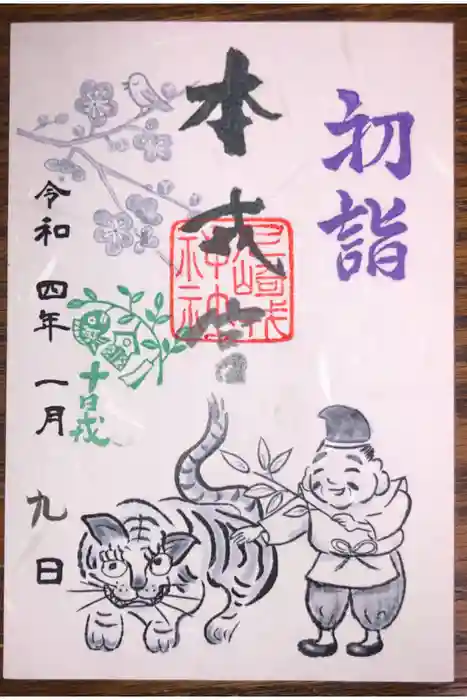 初詣
本
尼崎戎
神社
十日戎
令和 四年 一月 九日